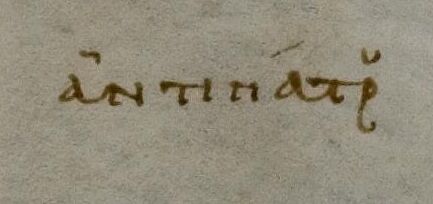 ἀντιπάτρου